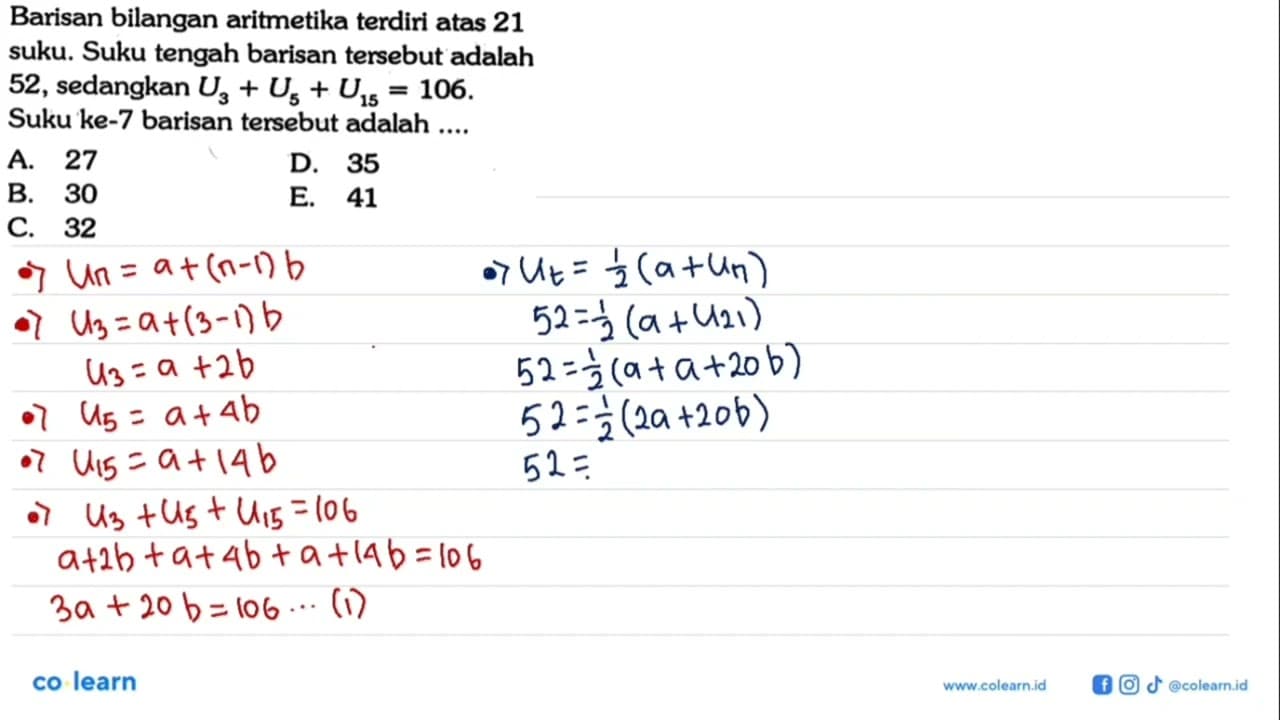 Barisan bilangan aritmetika terdiri atas 21
suku. Suku tengah barisan tersebut adalah
52, sedangkan U₃ + U₅ + U₁₅ = 106.
Suku ke-7 barisan tersebut adalah ....
A. 27
B. 30
C. 32
D. 35
E. 41
•⇒ Un = a + (n-1) b
•⇒ U₃ = a + (3-1) b
U₃ = a + 2b
•⇒ U₅ = a + 4b
•⇒ U₁₅ = a + 14b
•⇒ U₃ + U₅ + U₁₅ = 106
a+2b + a + 4b + a + 14b = 106
3a + 20b = 106 ... (1)
•⇒ Ut = 1/2 (a + Un)
52 = 1/2 (a + U₂₁)
52 = 1/2 (a + a + 20b)
52 = 1/2 (2a + 20b)
52 =
co learn
www.colearn.id
@colearn.id